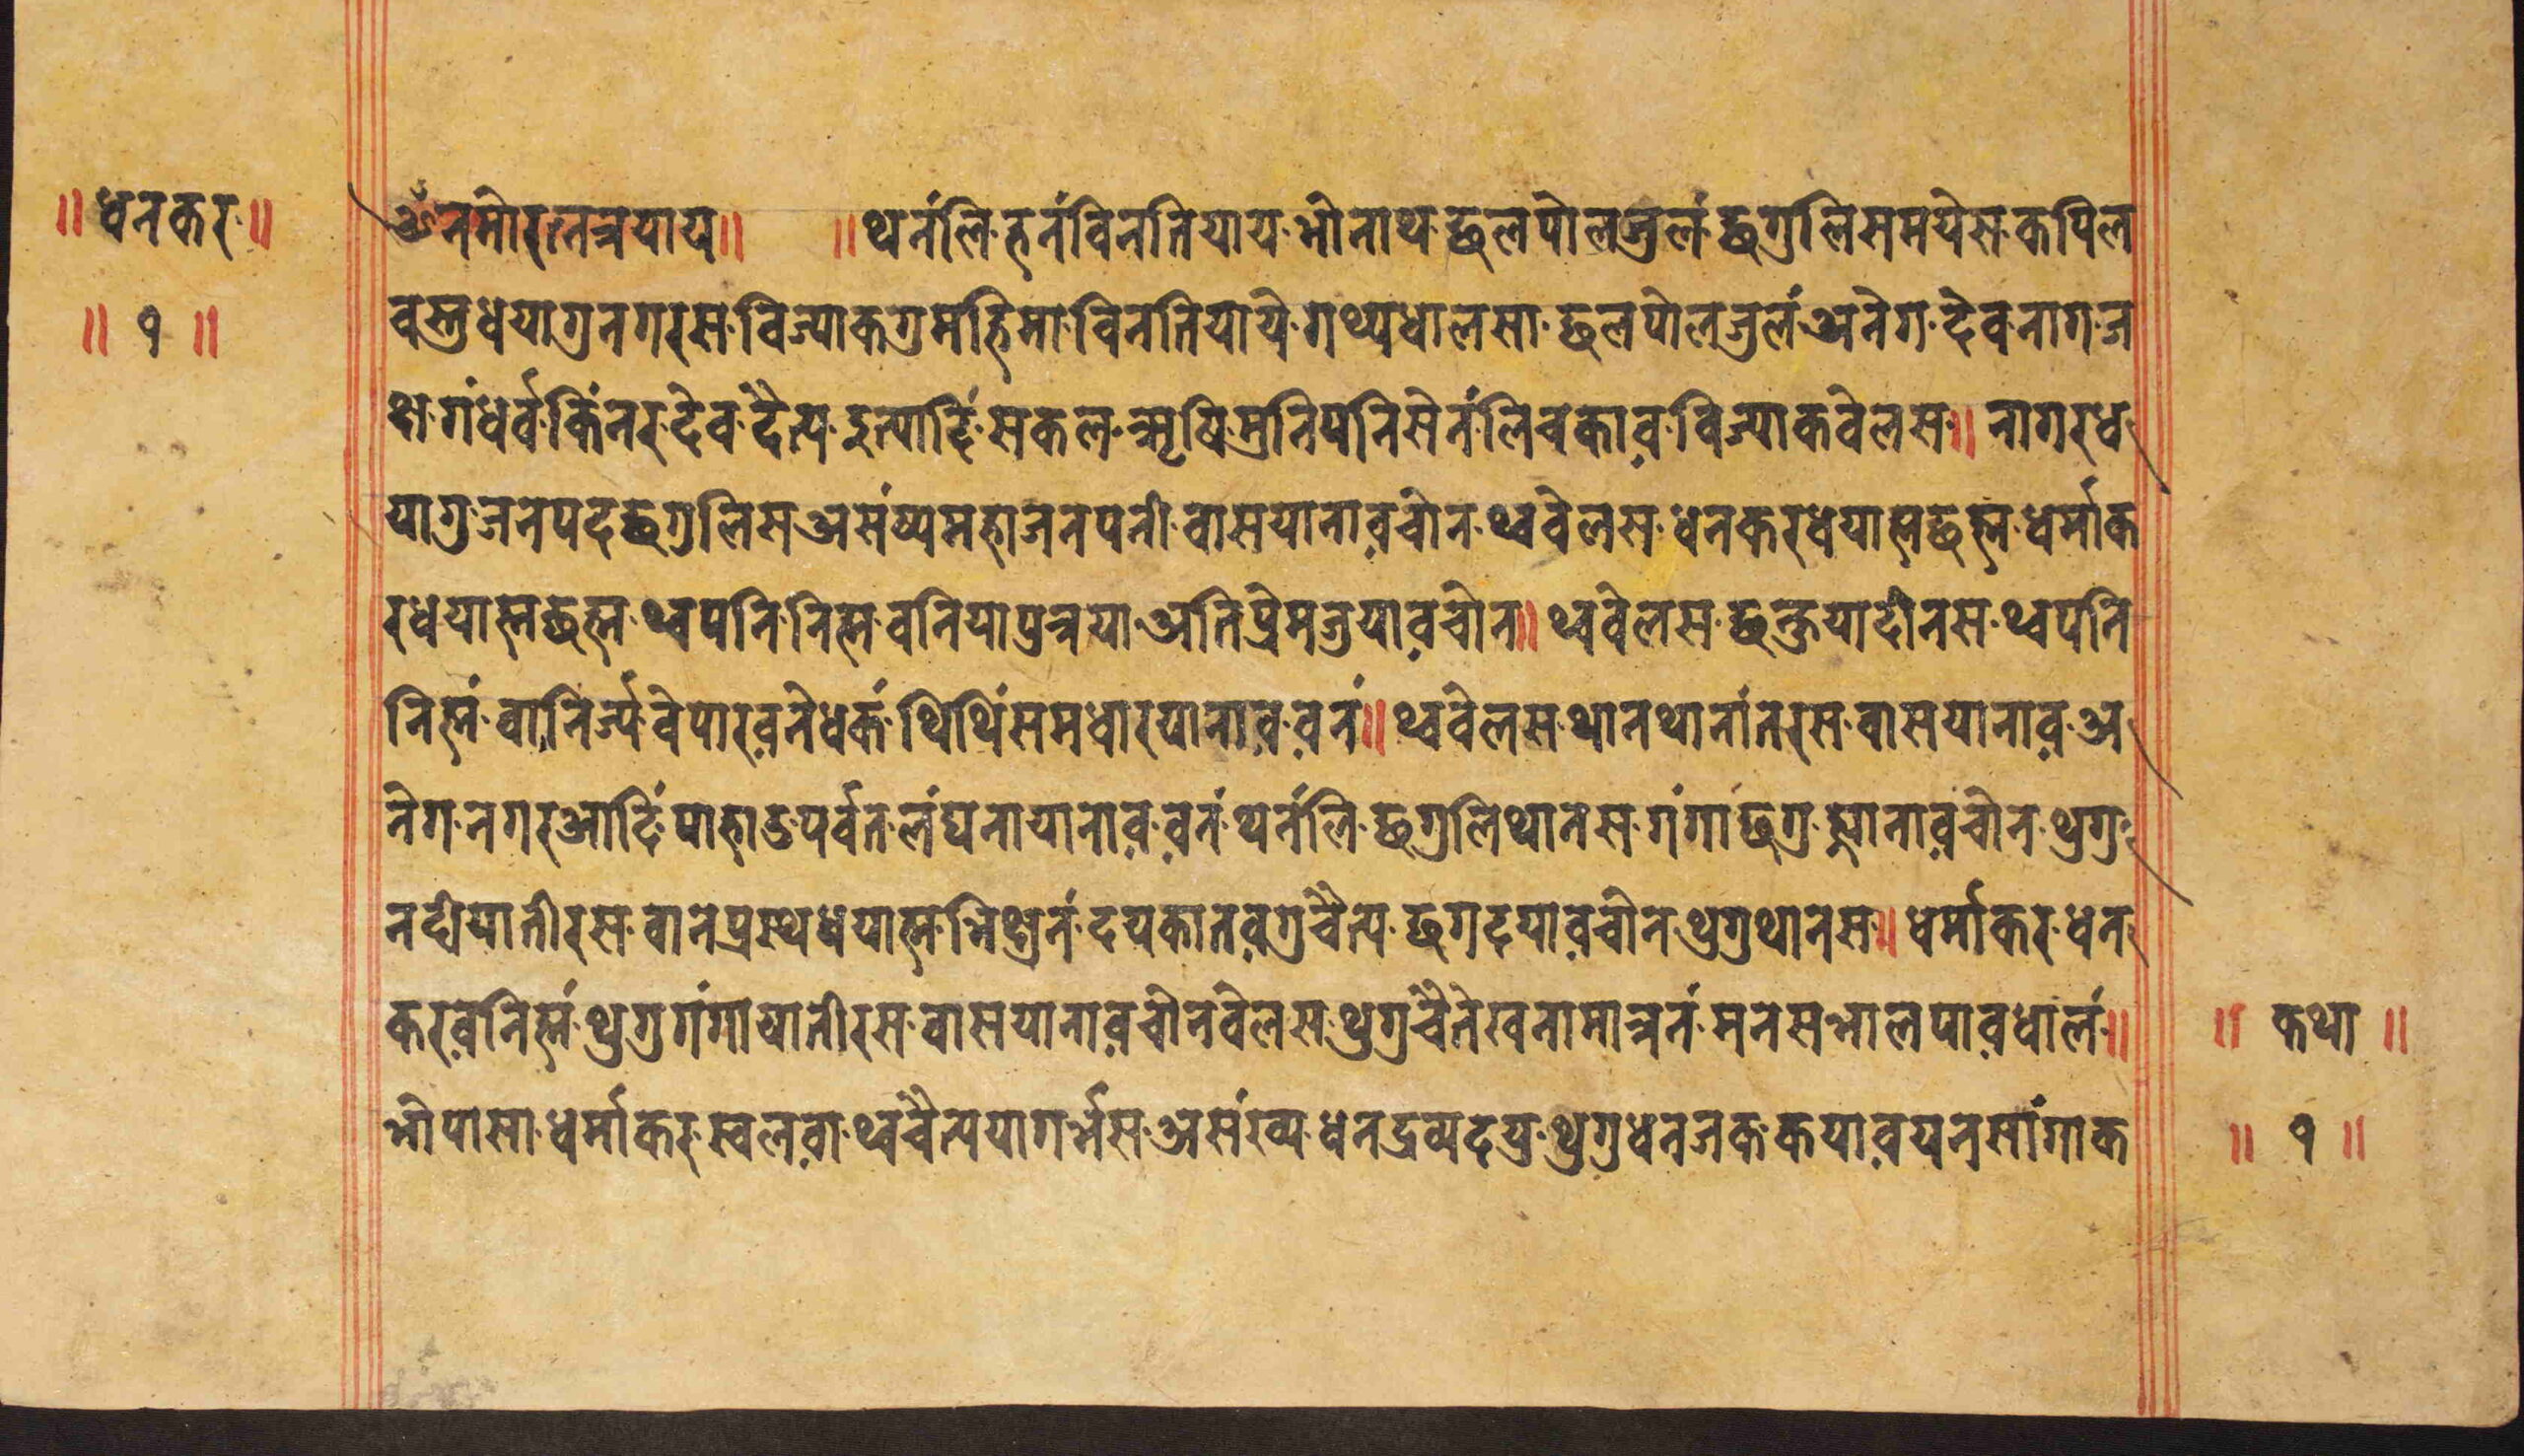 ॥ धनकर ॥
॥ १ ॥
ॐ नमो रत्नत्रयाय ॥ ॥ थनंलि हनं विनतियाय भो नाथ छलपोलजुलं छगुलि समयेस कपिल
वस्तु धयागु नगरस विज्याकगु महिमा विनतियाये गथ्यधालसा छलपोलजुलं अनेग देव नाग ज
क्ष गंधर्व किंनर देव दैत्य इत्यादिं सकल ऋषि मुनिपनिसेनंलिचकाव़ विज्याकवेलस ॥ नागरध
यागु जनेपद छगुलिस असंष्य महाजनपनी वासयानाव़चोन थ्ववेलस धनकरधेयाह्म छह्म धर्माक
रधेयाह्म छह्म थ्वपनि निह्म वनियापुत्रया अतिप्रेमजुयाव़चोन ॥ थ्ववेलस छन्हुयादीनस थ्वपनि
निह्मं वानिर्ज्य वेपारव़नेधकं थिथिं समधारयानाव़ व़नं ॥ थ्ववेलस थानथानांतरस वासयानाव़ अ
नेग नगरआदिं पाहाडपर्वत लंघनायानाव़ व़नं थनंलि छगुलिथानस गंगा छगु ह्यानाव़चोन थुगु
नदीयातीरस वानेप्रस्थ धयाह्म भिक्षुनं दयकातव़गु चैत्य छगदयाव़चोन थुगुथानस ॥ धर्माकर धन
करव़निह्मं थुगुगंगायातीरस वासयानाव़चोनवेलस थुगुचैतेखनामात्रनं मनेसभालपाव़धालं ॥
॥ कथा ॥
भोपासा धर्माकर स्वलव़ा थ्वचैत्ययागर्भस असंख्य धनद्रव्यदयु थुगुधनजककयाव़यनसांगाक
॥ १ ॥